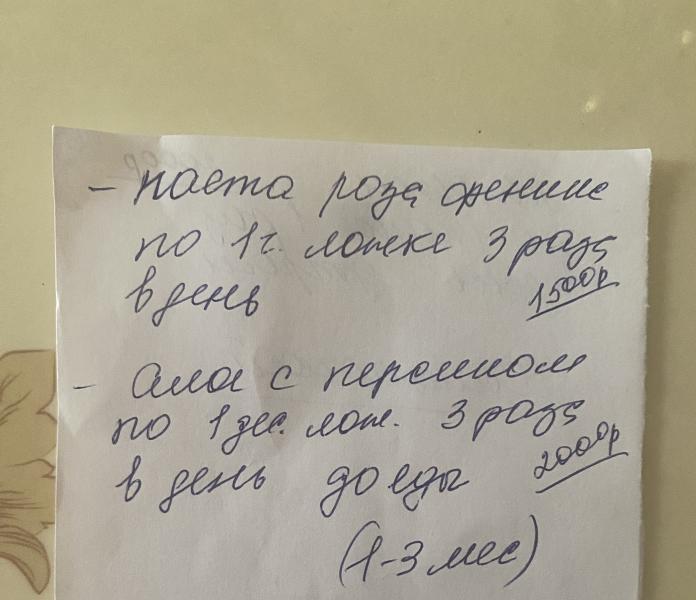 - паста роза феникс
по 1 ч. ложке 3 раза
в день
1500р
- Алоэ с персиком
по 1 дес. лож. 3 раза
в день до еды
2000р
(1-3 мес)